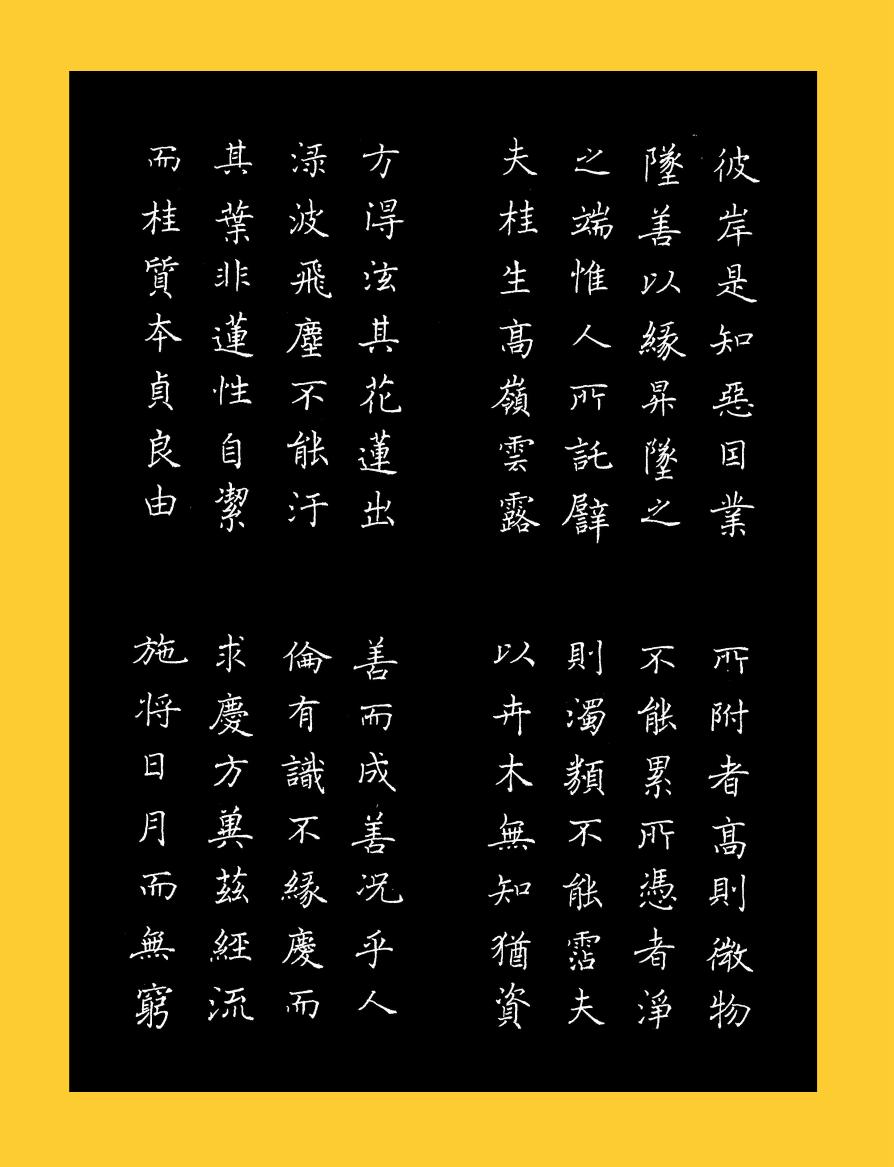 彼岸是知惡囙業
墜善以緣昇墜之
之端惟人所託譬
夫桂生高嶺雲露
方得泫其花蓮出
淥波飛塵不能汙
其葉非蓮性自潔
而桂質夲貞良由
所附者高則微物
不能累所憑者淨
則濁類不能霑夫
以卉木無知猶資
善而成善况乎人
倫有識不緣慶而
求慶方冀茲經流
施将日月而無窮